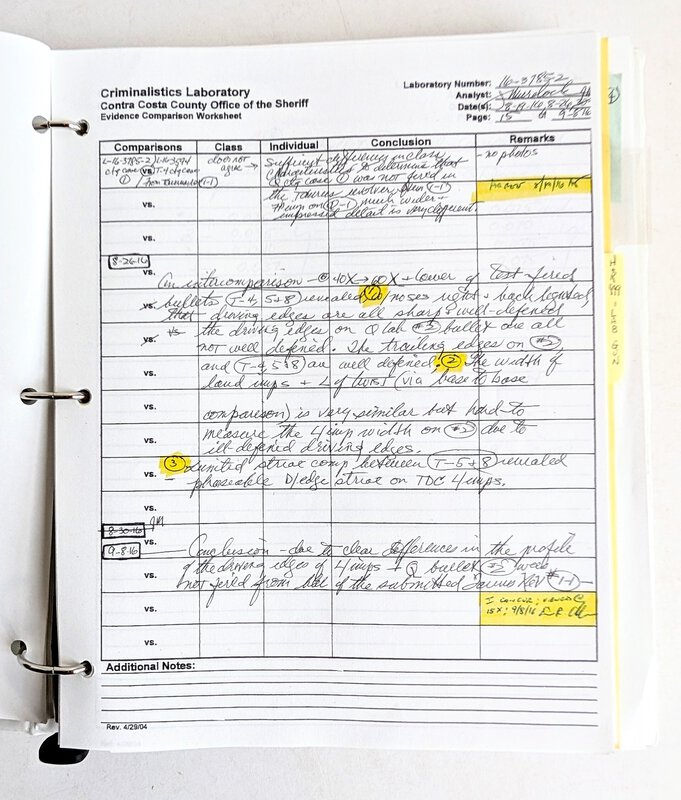 Criminalistics Laboratory
Contra Costa County Office of the Sheriff
Evidence Comparison Worksheet
Laboratory Number: 16-3785-2
Analyst: Murdock
Date(s): 8-19-16, 8-26,30
Page: 15 of 9-8-16
Comparisons Class Individual Conclusion Remarks
L-16-3785-2 L-16-3594
ctg case vs. T-4 ctg case
① from Taurus (1-1)
does not
agree →
Sufficient difference in class
characteristics to determine that
Q ctg case ① was not fired in
the Taurus revolver (1-1)
FP imp on much wider +
impressed detail is very different
- no photos
vs.
vs.
8-26-16
vs.
An intercomparison - @ 40X → 60X + lower of test fired
bullets (T-4, 5+8) revealed ① w/noses right + back lighted,
vs.
that driving edges are all sharp + well-defined
vs.
vs the driving edges on Q lab #5 bullet are all
not well defined. The trailing edges on #5
vs.
and (T-4, 5+8) are well defined. ② The width of
land imps + L of twist (via base to base
vs.
comparison) is very similar but hard to
measure the L imp width on #5 due to
vs.
ill-defined driving edges.
③ Limited striae comp between (T-5+8) revealed
vs.
phaseable D/edge striae on TDC L imps.
vs.
8-30-16
vs.
9-8-16
Conclusion - due to clear differences in the profile
vs.
of the driving edges of L imps + Q bullet #5 was
not fired from of the submitted Taurus Rev #1-1
vs.
I concur; viewed @
15X; 9/8/16
vs.
Additional Notes:
Rev. 4/29/04